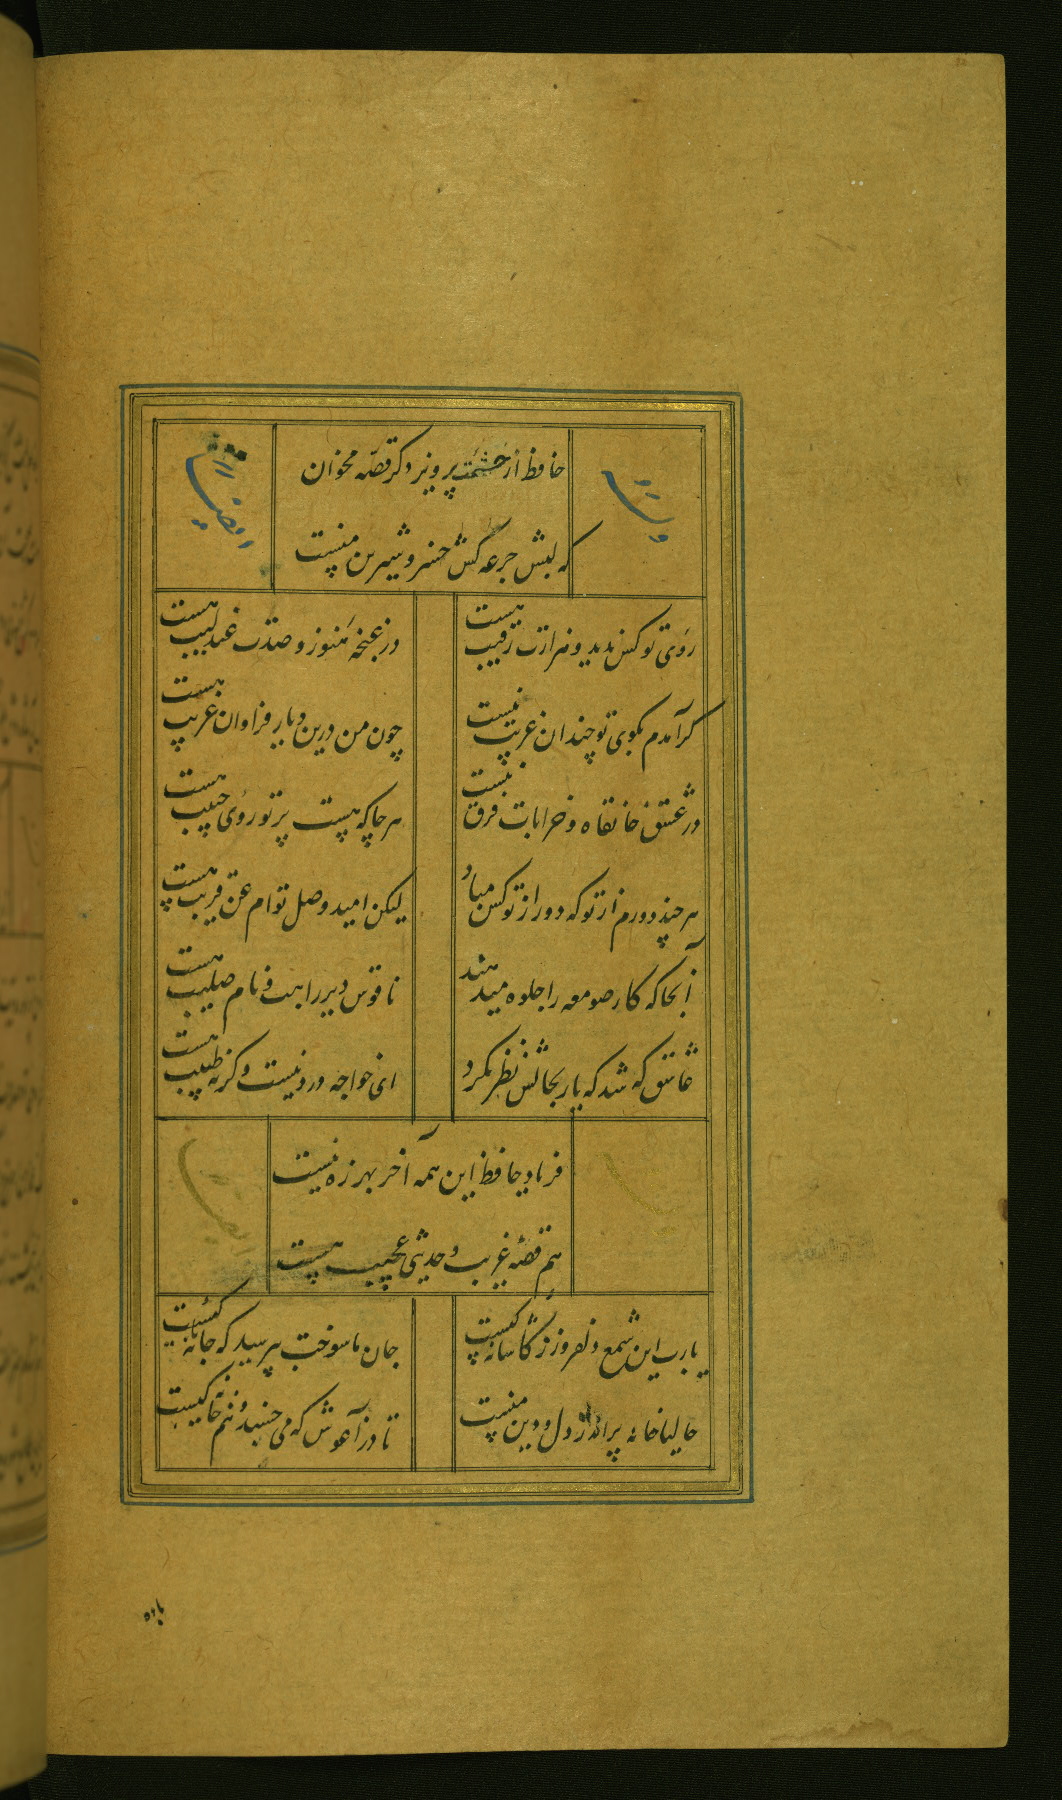 حافظ از حشمت پرویز دگر قصه مخوان
که لبش جرعه کش خسرو شیرین منست
روی تو کس ندید و هزارت رقیب هست
در غنچه هنوز و صدت عندلیب هست
گر آمدم بکوی تو چندان غریب نیست
چون من درین دیار فراوان غریب هست
در عشق خانقاه و خرابات فرق نیست
هر جا که هست پرتو روی حبیب هست
هر چند دورم از تو که دور از تو کس مباد
لیکن امید وصل توام عن قریب هست
آنجا که کار صومعه را جلوه میدهند
ناقوس دیر راهب و نام صلیب هست
عاشق که شد که یار بحالش نظر نکرد
ای خواجه درد نیست وگرنه طبیب هست
فریاد حافظ این همه آخر بهرزه نیست
هم قصه غریب و حدیثی عجیب هست
یارب این شمع دلفروز ز کاشانه کیست
جان ما سوخت بپرسید که جانانه کیست
حالیا خانه برانداز دل و دین منست
تا در آغوش که می خسبد و همخانه کیست
باده